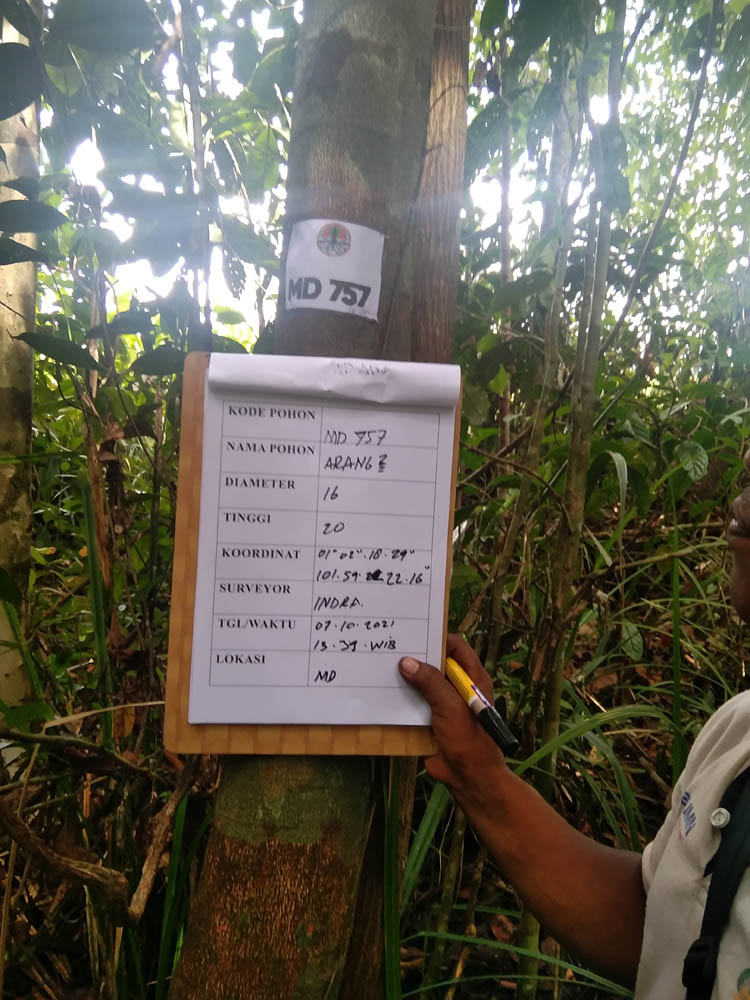 MD 757
KODE POHON
MD 757
NAMA POHON
ARANG²
DIAMETER
16
TINGGI
20
KOORDINAT
01° 02" . 18 . 29"
101 . 59 . 22 . 16"
SURVEYOR
INDRA.
TGL/WAKTU
07 . 10 . 2021
13 . 39 . WIB
LOKASI
MD